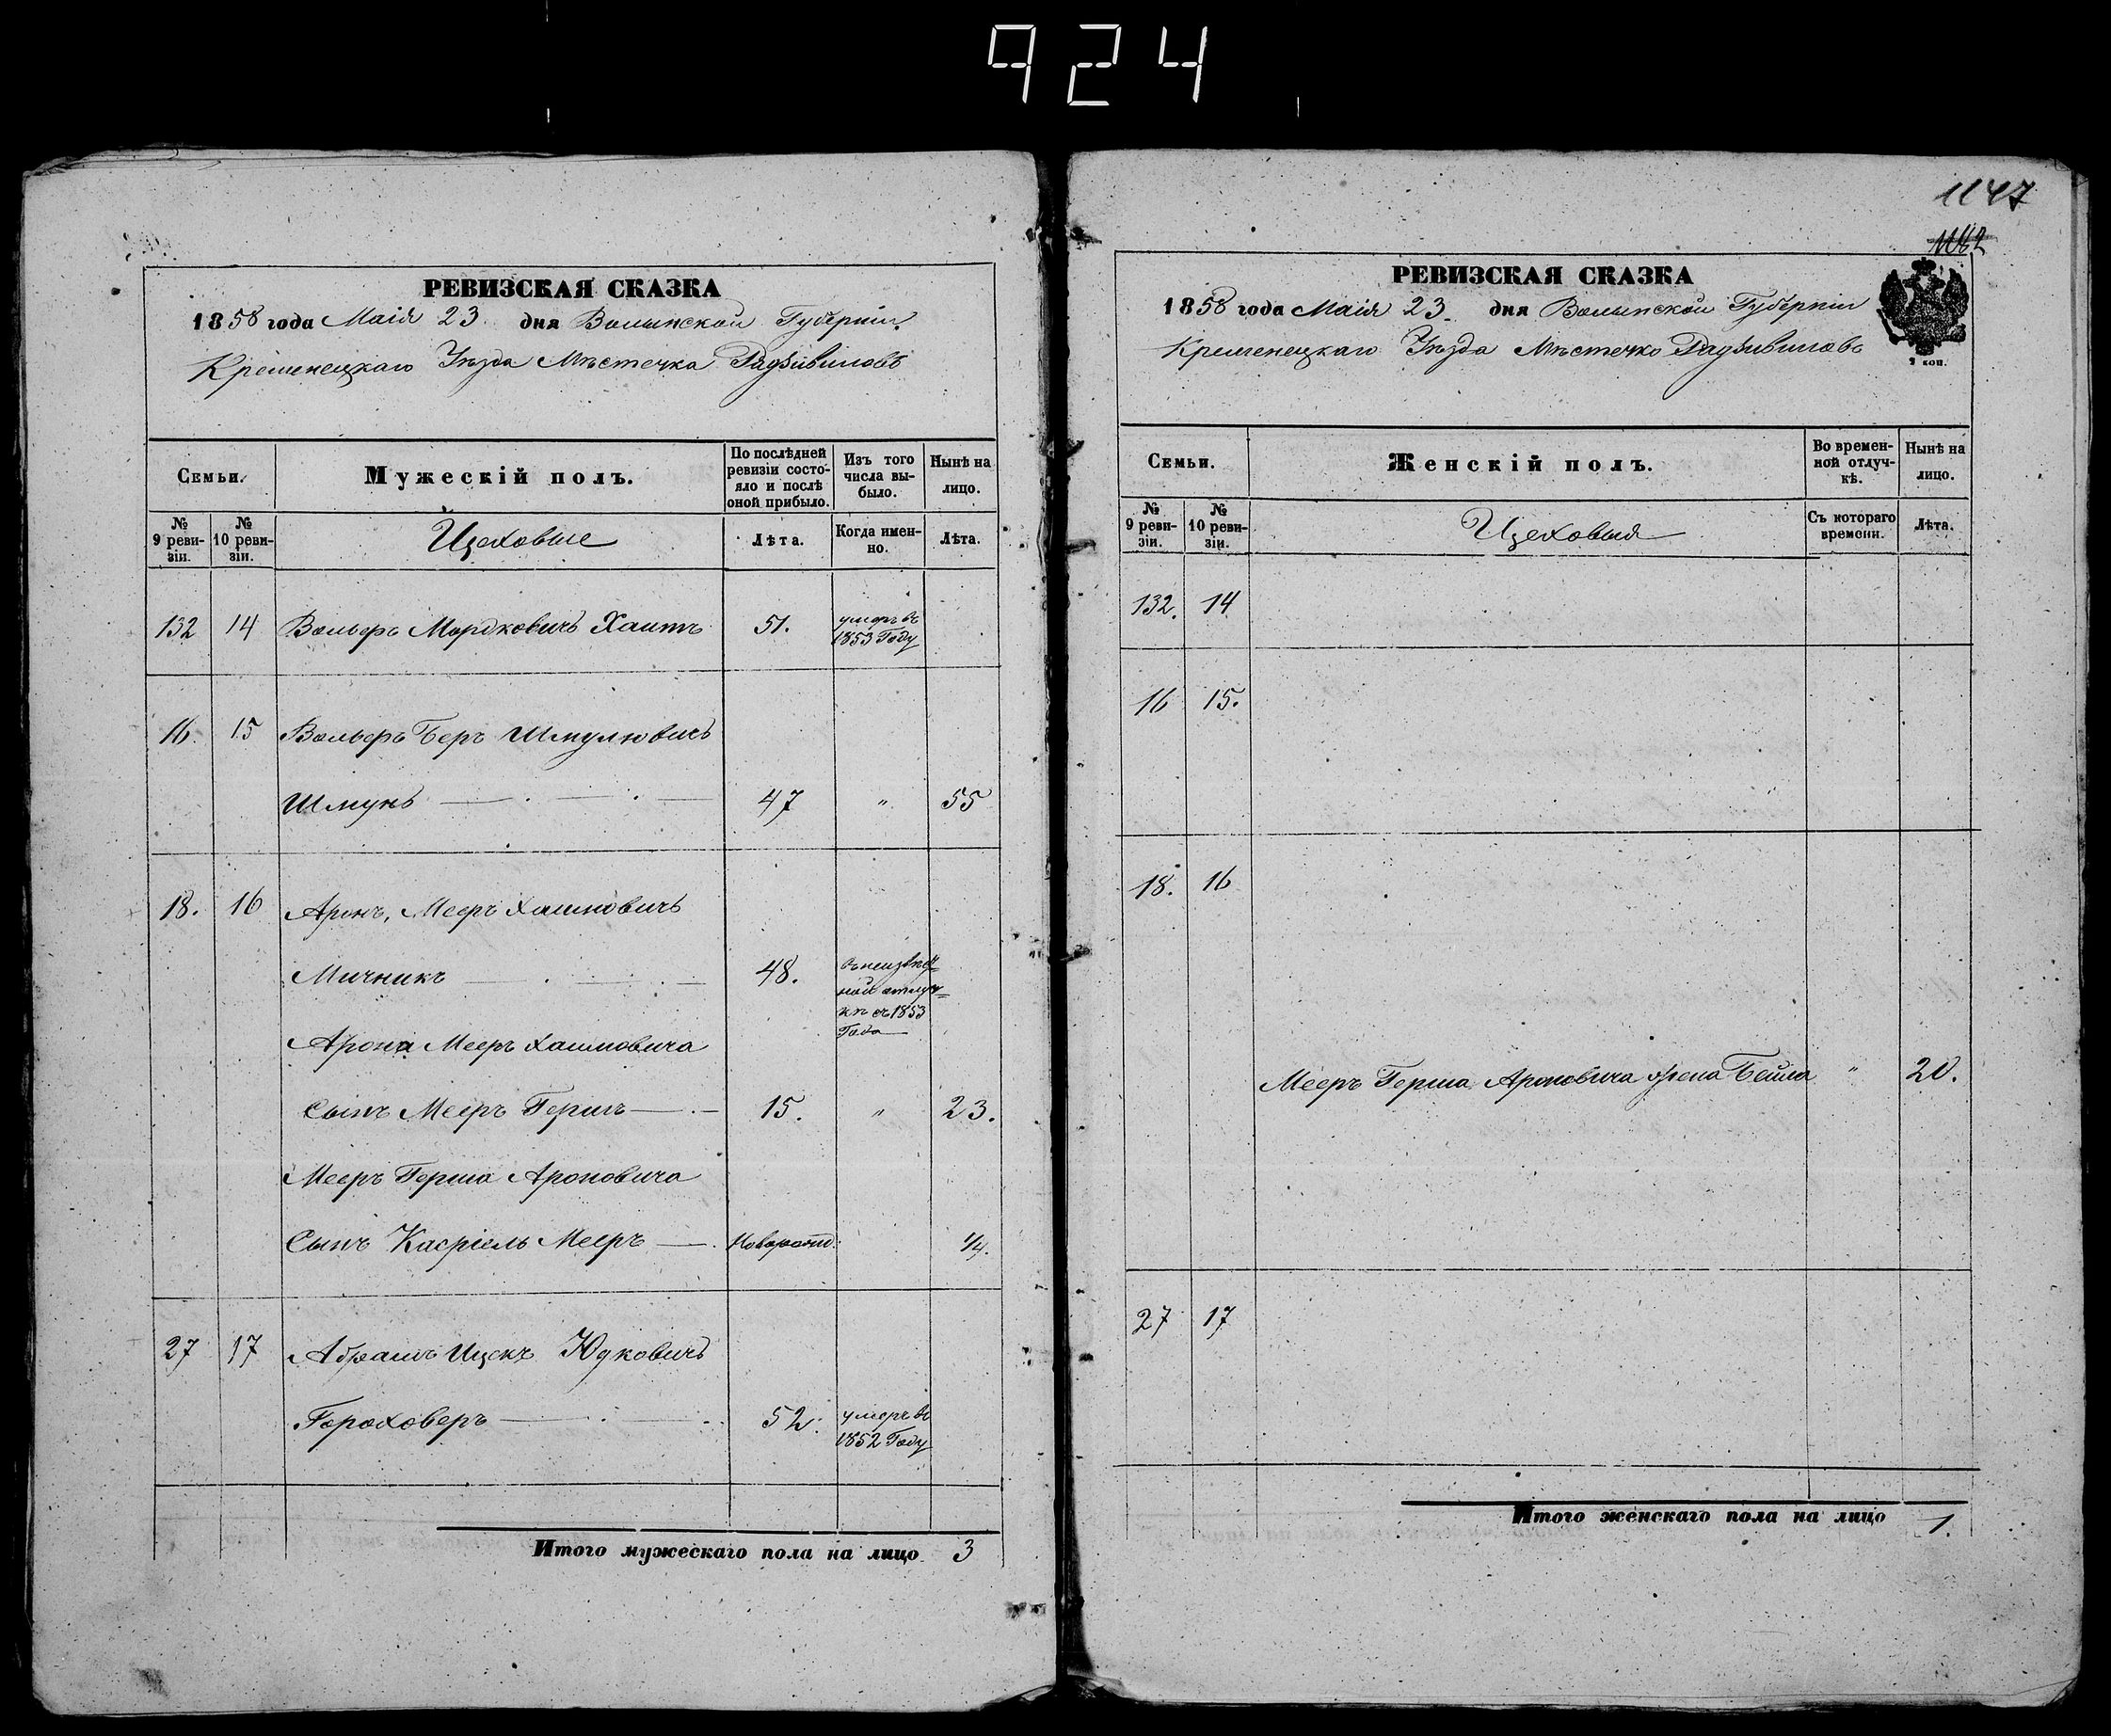 924
РЕВИЗСКАЯ СКАЗКА
1858 года Маія 23 дня Волынской Губерніи
Кременецкаго Уѣзда Мѣстечка Радзивиловъ
Семьи.
Мужескій полъ.
По послѣдней ревизіи состояло и послѣ оной прибыло.
Изъ того числа выбыло.
Нынѣ на лицо.
№ 9 ревизіи.
№ 10 ревизіи.
Цеховые
Лѣта.
Когда именно.
Лѣта.
132 14 Вольфъ Мордковичъ Хаитъ 51. умеръ въ
1853 Году
16. 15 Вольфъ Беръ Шмулювичъ
Шмунъ 47 " 55
18. 16 Аронъ, Мееръ Хаимовичъ
Мичникъ 48. въ неизвѣст=
ной отлуч=
кѣ съ 1853
Года
Арона Мееръ Хаимовича
Сынъ Мееръ Гершъ 15. " 23.
Мееръ Герша Ароновича
Сынъ Касріель Мееръ Новорожд: 1/4.
27 17 Абрамъ Ицекъ Юдковичъ
Гороховеръ 52. умеръ въ
1852 Году
Итого мужескаго пола на лицо 3
1147
РЕВИЗСКАЯ СКАЗКА
1858 года Маія 23 дня Волынской Губерніи
Кременецкаго Уѣзда Мѣстечко Радзивиловъ
2 коп.
Семьи.
Женскій полъ.
Во временной отлучкѣ.
Нынѣ на лицо.
№ 9 ревизіи.
№ 10 ревизіи.
Цеховыя
Съ котораго времени.
Лѣта.
132. 14
16 15.
18. 16
Мееръ Герша Ароновича жена Бейла " 20.
27 17
Итого женскаго пола на лицо 1.